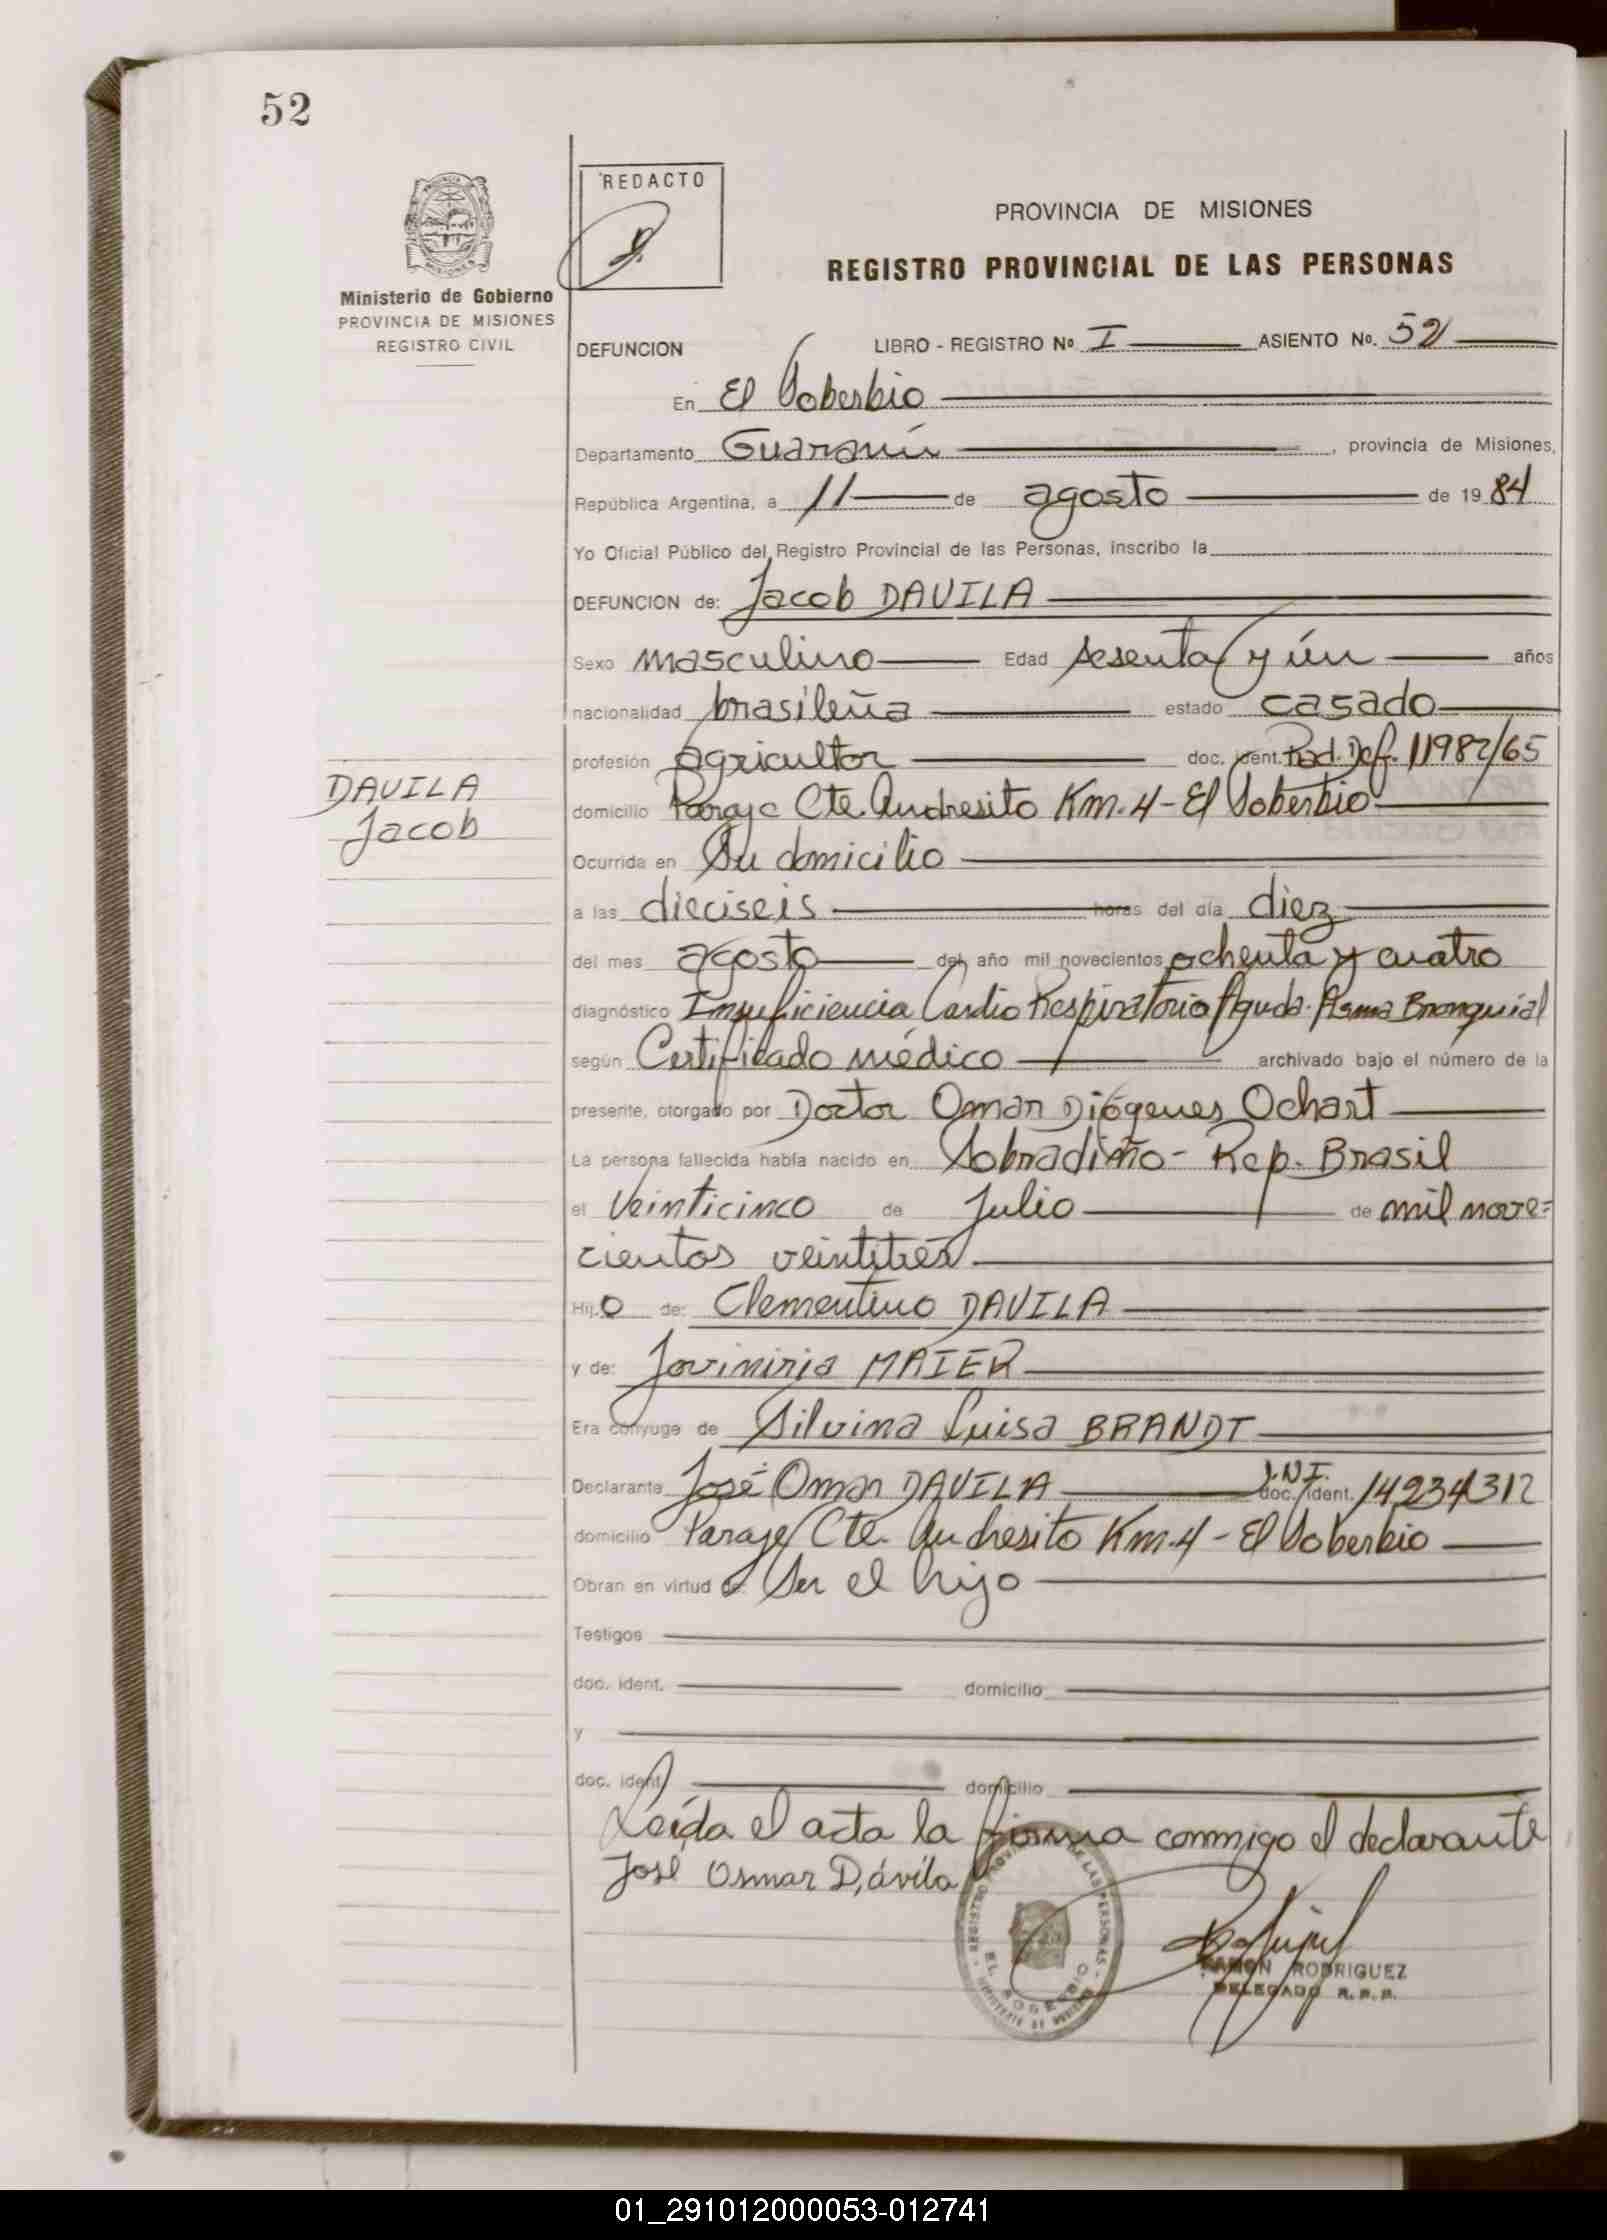 52
REDACTO
Ministerio de Gobierno
PROVINCIA DE MISIONES
REGISTRO CIVIL
PROVINCIA DE MISIONES
REGISTRO PROVINCIAL DE LAS PERSONAS
DEFUNCION LIBRO - REGISTRO Nº I ASIENTO No. 52
En El Soberbio
Departamento Guaraní, provincia de Misiones,
República Argentina, a 11 de agosto de 1984
Yo Oficial Público del Registro Provincial de las Personas, inscribo la
DEFUNCION de: Jacob DAVILA
Sexo masculino Edad sesenta y ún años
nacionalidad brasileña estado casado
profesión agricultor doc. ident. Rad. Def. 11982/65
DAVILA
Jacob
domicilio Paraje Cte. Andresito Km. 4 - El Soberbio
Ocurrida en Su domicilio
a las dieciseis horas del día diez
del mes agosto del año mil novecientos ochenta y cuatro
diagnóstico Insuficiencia Cardio Respiratorio Aguda. Asma Bronquial
según Certificado médico archivado bajo el número de la
presente, otorgado por Doctor Omar Diógenes Ochart
La persona fallecida había nacido en Sobradiño - Rep. Brasil
el Veinticinco de Julio de mil nove=
cientos veintitrés
Hijo de: Clementino DAVILA
y de: Joviniria MAIER
Era cónyuge de Silvina Luisa BRANDT
Declarante José Omar DAVILA D.N.I. doc. ident. 14234312
domicilio Paraje Cte. Andresito Km. 4 - El Soberbio
Obran en virtud de: Ser el hijo
Testigos
doc. ident. domicilio
y
doc. ident. domicilio
Leída el acta la firma conmigo el declarante
José Osmar Dávila
REGISTRO PROVINCIAL DE LAS PERSONAS
EL SOBERBIO
MINISTERIO DE GOBIERNO
RAMON RODRIGUEZ
DELEGADO R.P.P.
01_291012000053-012741